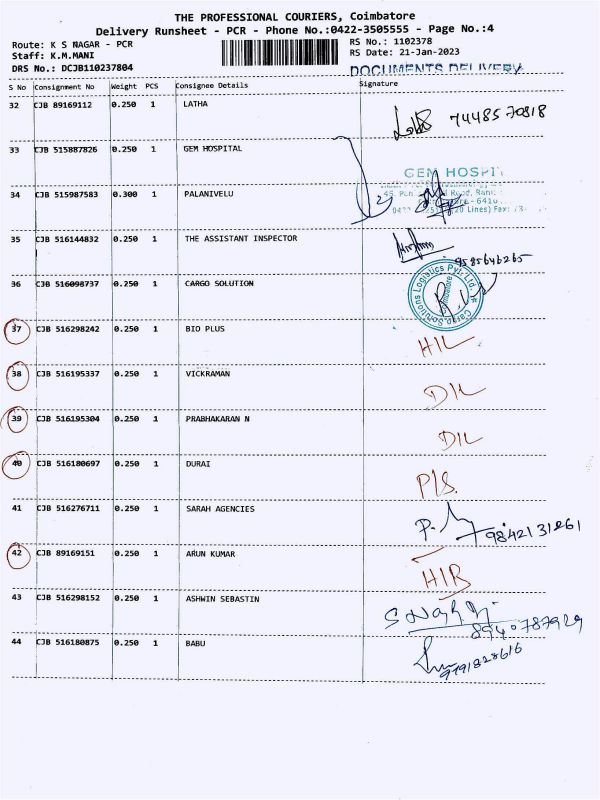 THE PROFESSIONAL COURIERS, Coimbatore
Delivery Runsheet - PCR - Phone No.:0422-3505555 - Page No.:4
Route: K S NAGAR - PCR RS No.: 1102378
Staff: K.M.MANI RS Date: 21-Jan-2023
DRS No.: DCJB110237804 DOCUMENTS DELIVERY
S No Consignment No Weight PCS Consignee Details Signature
32 CJB 89169112 0.250 1 LATHA 7448570818
33 CJB 515887826 0.250 1 GEM HOSPITAL
GEM HOSPI
34 CJB 515987583 0.300 1 PALANIVELU
35 CJB 516144832 0.250 1 THE ASSISTANT INSPECTOR
9585646265
36 CJB 516098737 0.250 1 CARGO SOLUTION
Cargo Solutions Logistics Pvt. Ltd.
37 CJB 516298242 0.250 1 BIO PLUS
38 CJB 516195337 0.250 1 VICKRAMAN
D/L
39 CJB 516195304 0.250 1 PRABHAKARAN N
D/L
40 CJB 516180697 0.250 1 DURAI
P/S.
41 CJB 516276711 0.250 1 SARAH AGENCIES
42 CJB 89169151 0.250 1 ARUN KUMAR
43 CJB 516298152 0.250 1 ASHWIN SEBASTIN
8940787929
44 CJB 516180875 0.250 1 BABU
9791828616